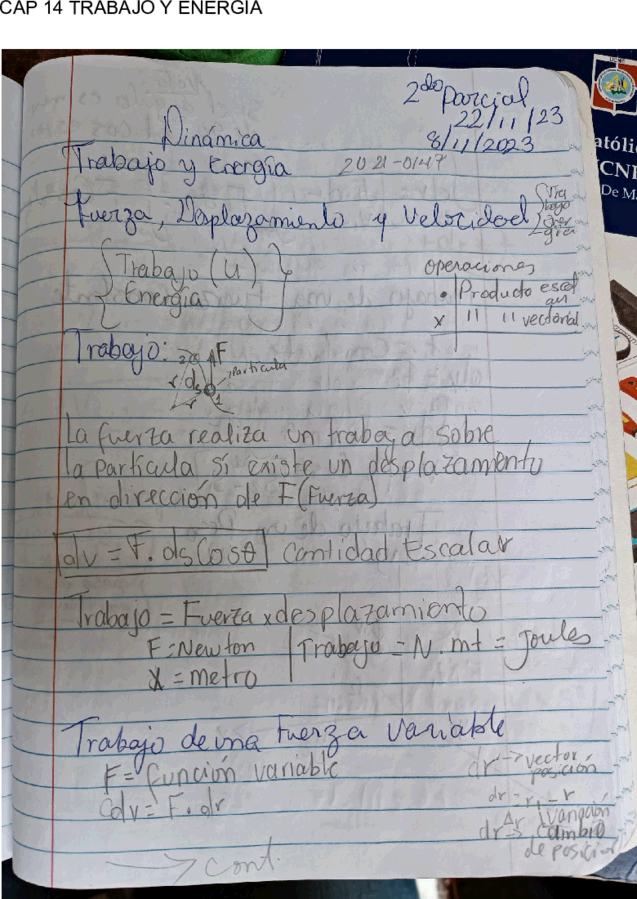 CAP 14 TRABAJO Y ENERGIA
2do parcial
22/11/23
8/11/2023
Dinámica
Trabajo y Energía 2021-0147
Fuerza, Desplazamiento y Velocidad
{Trabajo (U)
Energía}
operaciones
• Producto escal
x " " vectorial
Trabajo:
2 F
particula
r ds
r 1
La fuerza realiza un trabaja sobre
la particula si existe un desplazamiento
en dirección de F(Fuerza)
dv = F. ds Cos θ Cantidad Escalar
Trabajo = Fuerza x desplazamiento
F = Newton Trabajo = N . mt = Joules
X = metro
Trabajo de una Fuerza Variable
F = función variable
dv = F. dr
dr → vector
posición
dr = r1 - r
Δr variación
dr → cambio
de posición
→ cont.
atóli
CNE
De Ma